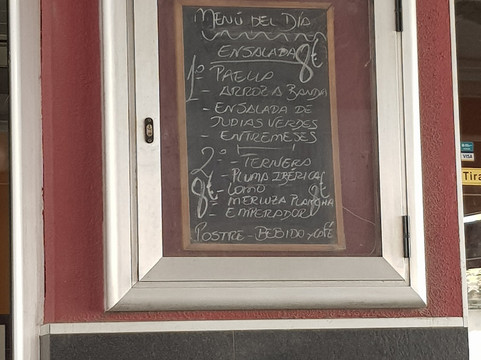 MENÚ DEL DÍA
ENSALADA 8€
1º PAELLA
- ARROZ A BANDA
- ENSALADA DE
JUDIAS VERDES
- ENTREMESES
2º - TERNERA
- PLUMA IBERICA
8€ - LOMO 8€
- MERLUZA PLANCHA
- EMPERADOR
POSTRE - BEBIDO Y CAFÉ
VISA
Tira